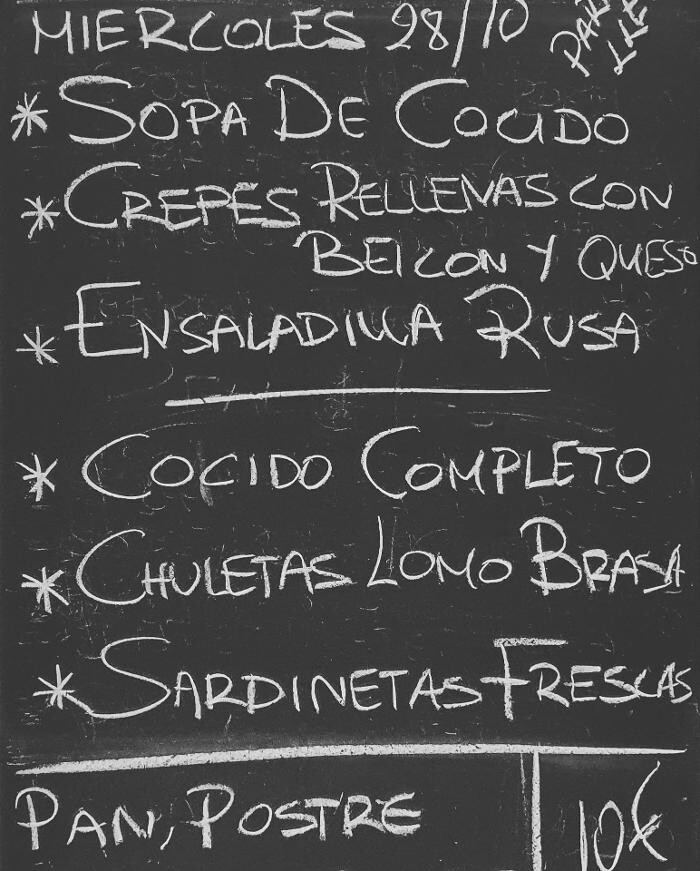 MIERCOLES 28/10
* SOPA DE COCIDO
* CREPES RELLENAS CON
BEICON Y QUESO
* ENSALADILLA RUSA
* COCIDO COMPLETO
* CHULETAS LOMO BRASA
* SARDINETAS FRESCAS
PAN, POSTRE 10€